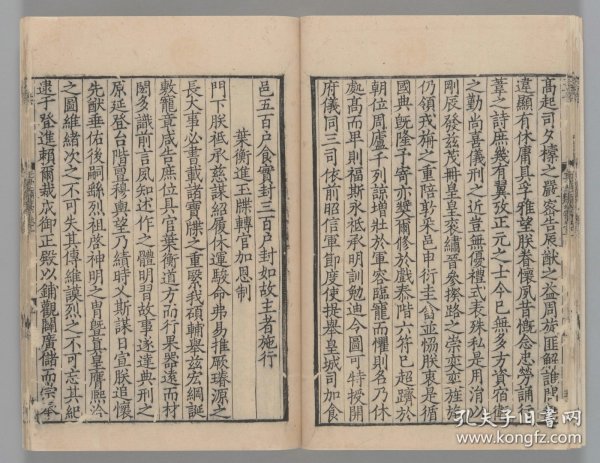 高起司夕燎之嚴密告辰猷之益周旋匪解誰
違顯有休庸具孚雅望朕眷懷夙昔慨念忠勞誦行
葦之詩庶幾有翼攷正元之士今已無多方資宿
之勤尚喜儀刑之近豈無優禮式表殊私是用
剛辰發茲茂冊皇皇袞繡晉參揆路之崇奕奕旌旄
仍領戎旃之重陪敦采邑申衍圭並愓朕衷是循
國典既隆予寄亦奬爾修於戲泰階六符已超躋於
朝位周廬千列諒增壯於軍容臨寵而懼則名乃休
處高而卑則福斯永祗承明訓勉迪今圖可特授開
府儀同三司依前昭信軍節度使提舉皇城司加食
邑五百户食實封三百户封如故主者施行
葉衡進玉牒轉官加恩制
門下朕祗承慈謀紹履休運駿命弗易推厥璿源之
長大事必書載諸寶牒之重繄我碩輔舉茲宏綱誕
敷寵章咸告庶位具官葉衡道方而行果器遠而材
閎多識前言夙知述作之體明習故事遂達典刑之
原延登台階亶穆輿望乃績時乂斯謀日宣朕追懷
先猷垂佑後嗣緜烈祖啓神明之冑曁眞皇膺熙洽
之圖維緒次之不可失其傳維謨烈之不可忘其紀
逮予登進賴爾裁成御正殿以鋪觀闢廣儲而崇奉
孔夫子旧书网
www.kongfz.com